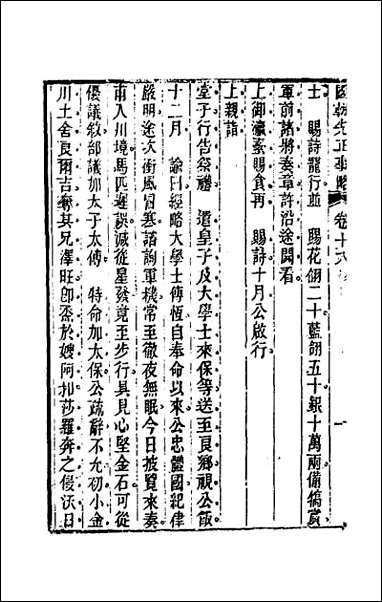 國朝先正事略 卷十六
士 賜詩寵行並 賜花翎二十藍翎五十銀十萬兩備犒賞
軍前諸將奏章許沿途開看
上御瀛臺賜食再 賜詩十月公啟行
上親詣
堂子行告祭禮 遣皇子及大學士來保等送至良鄉視公飯
十二月 諭曰經略大學士傅恆自奉命以來公忠體國紀律
嚴明途次衝風冒寒諮詢軍機常至徹夜無眠今日披覽來奏
甫入川境馬匹遲誤減從星發竟至步行具見心堅金石可從
優議敘部議加太子太傅 特命加太保公疏辭不允初小金
川土舍良爾吉奪其兄澤旺印烝於嫂阿扣莎羅奔之侵沃日